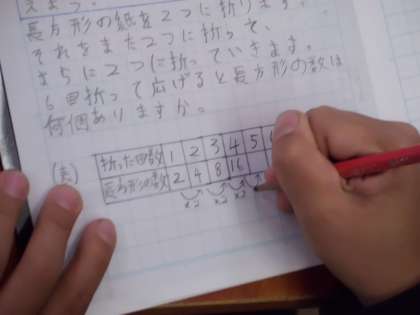 えましょう。
長方形の紙を2つに折ります。
それをまた2つに折って、
さらに2つに折っていきます。
6回折って広げると長方形の数は
何個ありますか。
(表)
折った回数 1 2 3 4 5
長方形の数 2 4 8 16
×2 ×2 ×2